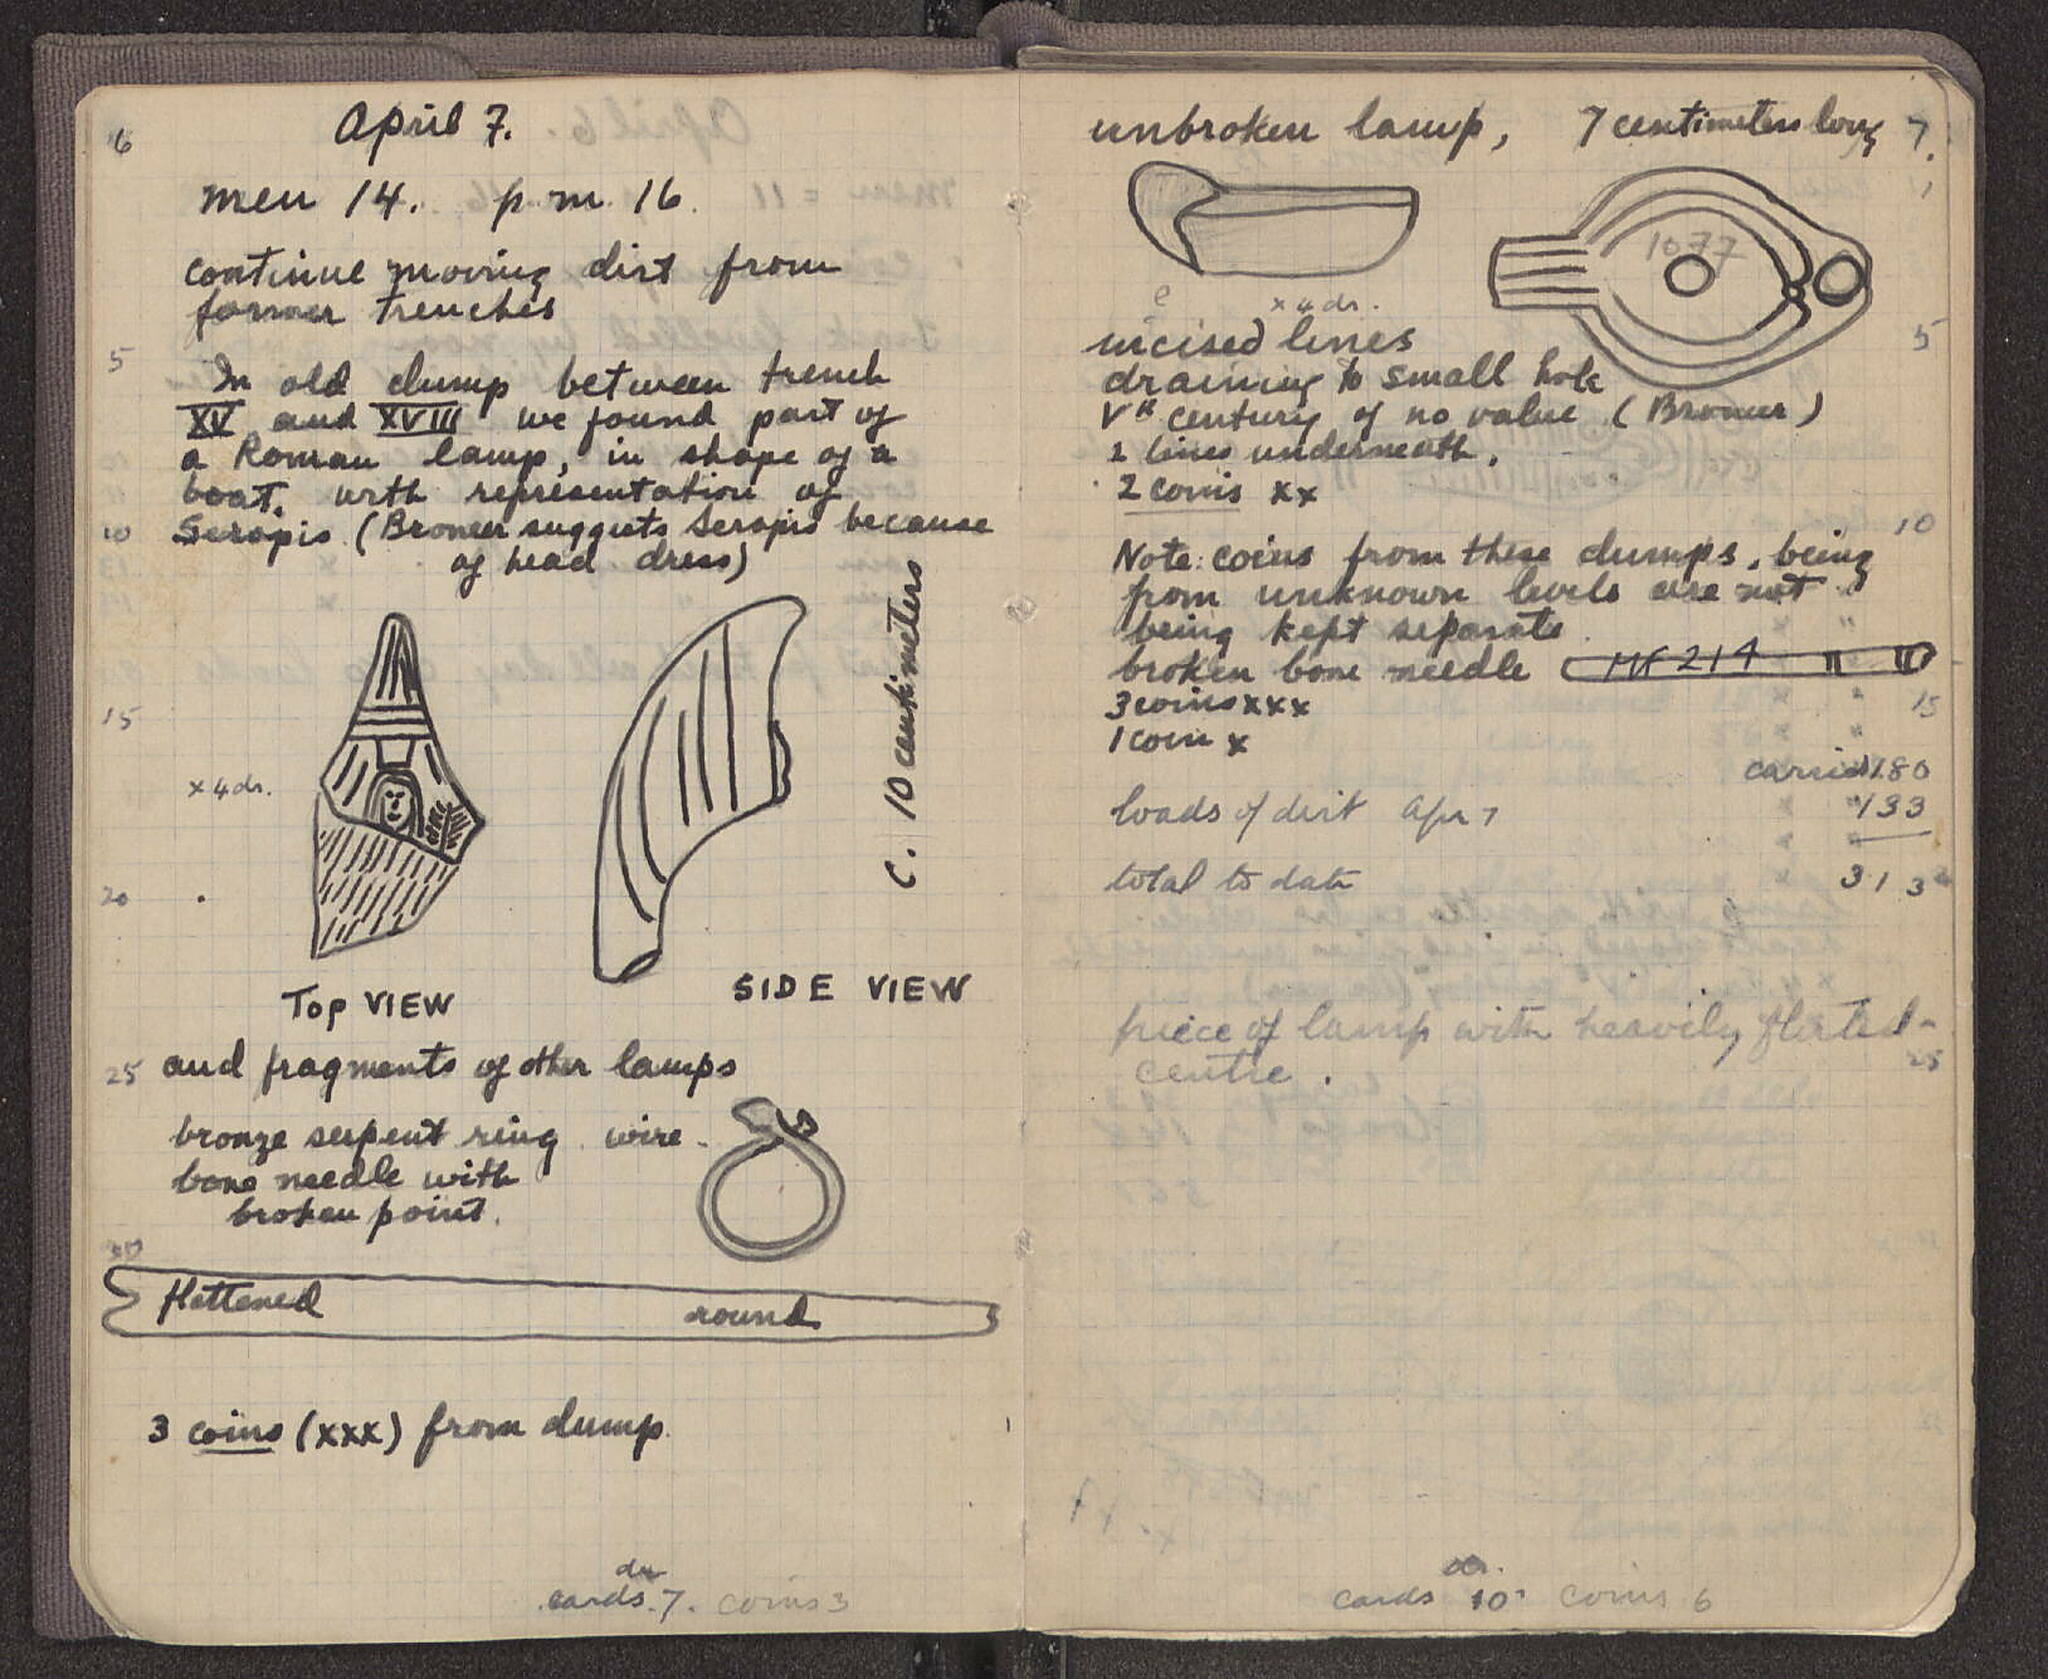 6
April 7.
men 14. p.m. 16.
continue moving dirt from
former trenches
5
In old dump between trench
XV and XVIII we found part of
a Roman lamp, in shape of a
boat, with representation of
10
Serapis (Broneer suggests Serapis because
of head dress)
15
x 4 dr.
C. 10 centimeters
20
TOP VIEW
SIDE VIEW
25
and fragments of other lamps
bronze serpent ring wire
bone needle with
broken point.
30
flattened round
3 coins (xxx) from dump.
dr
cards. 7. coins 3
7.
unbroken lamp, 7 centimeters long
1077
x 4 dr.
incised lines
5
draining to small hole
Vth century of no value (Broneer)
2 lines underneath.
2 coins xx
10
Note: coins from these dumps, being
from unknown levels are not
being kept separate.
broken bone needle MF 214
3 coins xxx
15
1 coin x
carried 180
loads of dirt Apr 7 133
total to date 313
piece of lamp with heavily fluted
25
centre.
dr.
cards 10 coins 6